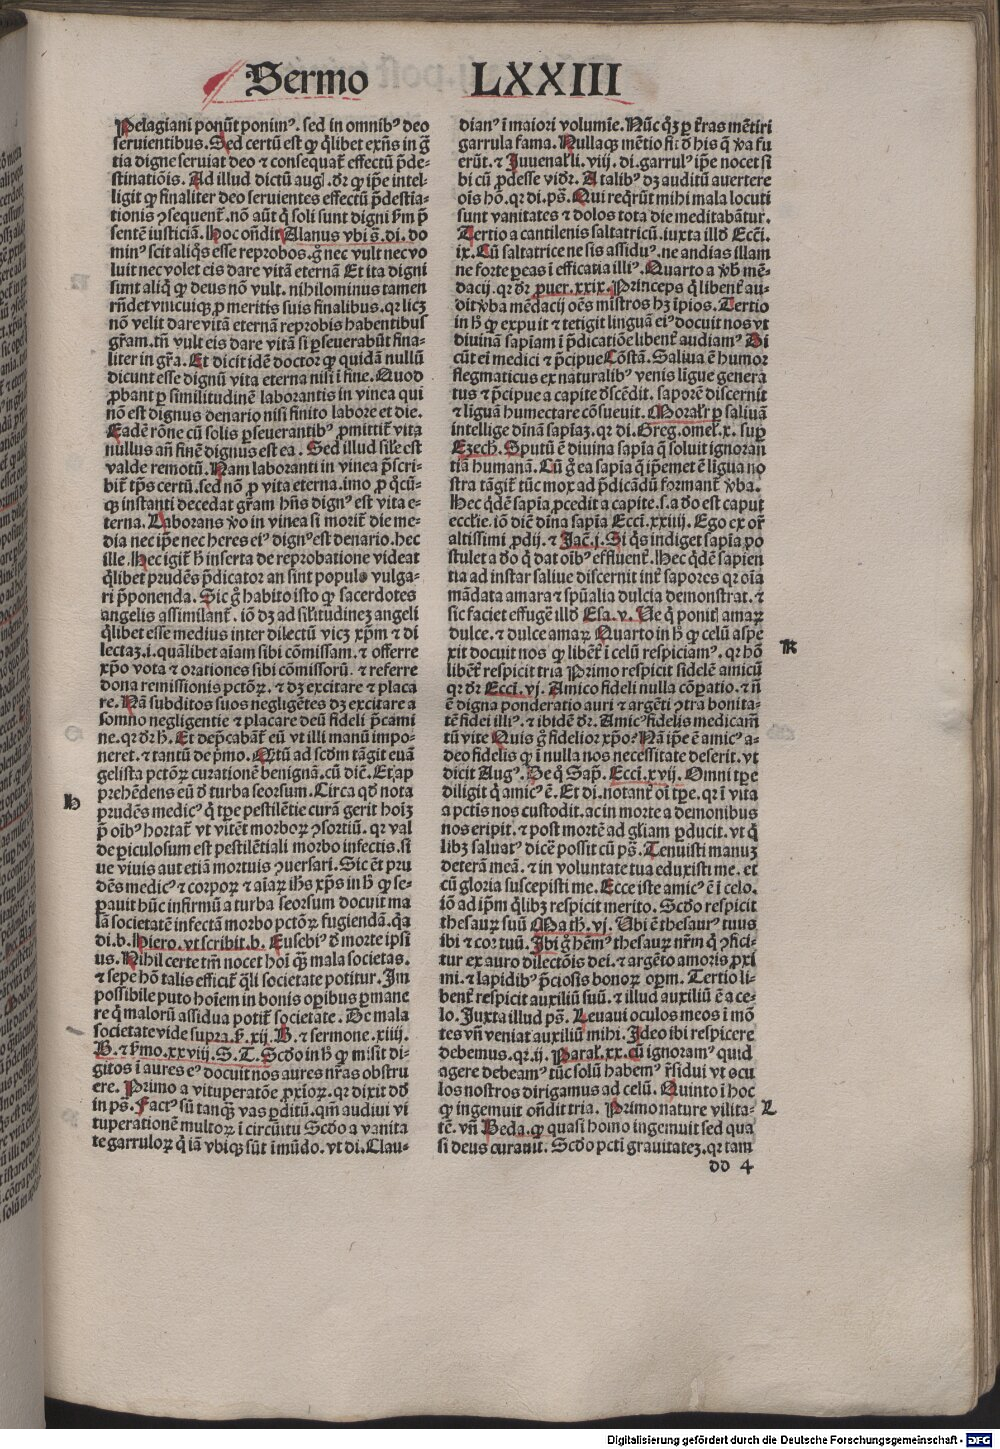 Sermo LXXIII
Pelagiani ponūt ponimꝰ. sed in omnibꝰ deo
seruientibus. Sed certū est ꝙ q̄libet exn̄s in ḡ
tia digne seruiat deo ⁊ consequat̄ effectū p̄de-
stinatiōis. Ad illud dictū augꝭ. dr̄ ꝙ ip̄e intel-
ligit ꝙ finaliter deo seruientes effectū p̄destia-
tionis ↄsequent̄. nō aūt q̄ soli sunt digni ẜm p̄
sentē iusticiā. Hoc on̄dit Alanus vbi s̄. di. do
minꝰ scit aliq̄s esse reprobos. g̊ nec vult nec vo
luit nec volet eis dare vitā eternā Et ita digni
sunt aliq̄ ꝙ deus nō vult. nihilominus tamen
rn̄det vnicuiqꝫ ꝓ meritis suis finalibus. qr licꝫ
nō velit dare vitā eternā reprobis habentibus
gr̄am. tn̄ vult eis dare vitā si ꝑseuerabūt fina-
liter in gr̄a. Et dicit idē doctor ꝙ quidā nullū
dicunt esse dignū vita eterna nisi ī fine. Quod
ꝓbant ꝑ similitudinē laborantis in vinea qui
nō est dignus denario nisi finito labore et die.
Eadē rōne cū solis ꝑseuerantibꝰ ꝓmittit̄ vita
nullus an̄ finē dignus est ea. Sed illud sil̄e est
valde remotū. Nam laboranti in vinea p̄scri-
bit̄ tp̄s certū. sed nō ꝓ vita eterna. imo ꝓ q̄cū-
qꝫ instanti decedat gr̄am hn̄s dignꝰ est vita e-
terna. Laborans v̊o in vinea si morit̄ die me-
dia nec ip̄e nec heres eiꝰ dignꝰ est denario. hec
ille. Hec igit̄ h̄ inserta de reprobatione videat
q̄libet prudēs p̄dicator an sint populo vulga-
ri p̄ponenda. Sic g̊ habito isto ꝙ sacerdotes
angelis assimilant̄. iō dꝫ ad sil̄itudinez angeli
q̄libet esse medius inter dilectū vicꝫ xp̄m ⁊ di
lectaꝫ. i. quālibet aīam sibi cōmissam. ⁊ offerre
xp̄o vota ⁊ orationes sibi cōmissorū. ⁊ referre
dona remissionis pctōꝝ. ⁊ dꝫ excitare ⁊ placa
re. Nā subditos suos negligētes dꝫ excitare a
somno negligentie ⁊ placare deū fideli p̄cami
ne. qr dr̄ h̄. Et dep̄cabāt̄ eū vt illi manū impo-
neret. ⁊ tantū de p̄mo. Qtū ad scdm tāgit euā
gelista pctōꝝ curationē benignā. cū diē. Et ap
prehēdens eū d̄ turba seorsum. Circa qd̄ nota
prudēs medicꝰ q̄ tꝑe pestilētie curā gerit hoīꝫ
p̄ oībꝰ hortat̄ vt vitēt morboꝝ ↄsortiū. qr val
de ꝑiculosum est pestilētiali morbo infectis. si
ue viuis aut etiā mortuis ↄuersari. Sic ēt pru
dēs medicꝰ ⁊ corpoꝝ ⁊ aīaꝝ ih̄s xp̄s in h̄ ꝙ se-
ꝑauit hūc infirmū a turba seorsum docuit ma
lā societatē infectā morbo pctōꝝ fugiendā. q̄a
di. b. Hiero. vt scribit. b. Eusebiꝰ d̄ morte ipsi
us. Nihil certe tm̄ nocet hoī qꝫ mala societas.
⁊ sepe hō talis efficit̄ q̄li societate potitur. Im
possibile puto hoīem in bonis oꝑibus ꝑmane
re q̄ maloru assidua potit̄ societate. De mala
societate vide supra. ẜ. xij. B. ⁊ sermone. xiiij.
B. ⁊ ẜmo. xxviij. S. T. Scd̄o in h̄ ꝙ misit di-
gitos ī aures eiꝰ docuit nos aures nr̄as obstru
ere. Primo a vituperatōe ꝓxioꝝ. qr dixit dd̄
in ps̄. Factꝰ sū tanqꝫ vas ꝑditū. qm̄ audiui vi
tuperationē multoꝝ ī circūitu Scd̄o a vanita
te garruloꝝ q̄ iā vbiqꝫ sūt ī mūdo. vt di. Clau-
H
dianꝰ ī maiori volumīe. Nūc q̄ꝫ ꝑ t̄ras mētiri
garrula fama. Nullaqꝫ mētio fit d̄ his q̄ v̊a fu
erūt. ⁊ Juuenal̄ li. viij. di. garrulꝰ ip̄e nocet si
bi cū ꝓdesse vidr̄. A talibꝰ dꝫ auditū auertere
oīs hō. qr di. ps̄. Qui reqr̄ūt mihi mala locuti
sunt vanitates ⁊ dolos tota die meditabātur.
Tertio a cantilenis saltatricū. iuxta illd̄ Ecci.
ix. Cū saltatrice ne sis assiduꝰ. ne audias illam
ne forte ꝑeas ī efficatia illiꝰ. Quarto a v̊b̄ mē-
dacij. qr dr̄ ꝓuer. xxix. Princeps q̄ libent̄ au-
dit v̊ba mēdacij oēs mīstros hꝫ īpios. Tertio
in h̄ ꝙ expuit ⁊ tetigit linguā eiꝰ docuit nos vt
diuinā sapiam ī p̄dicatiōe libent̄ audiamꝰ. Di
cūt ei medici ⁊ p̄cipue Cōstā. Saliua ē humor
flegmaticus ex naturalibꝰ venis ligue genera
tus ⁊ p̄cipue a capite d̄scēdit. saporē discernit
⁊ liguā humectare cōsueuit. Moralr̄ ꝑ saliuā
intellige diuinā sapiaꝫ. qr di. Greg. omel̄. x. suꝑ
Ezech. Sputū ē diuina sapia q̄ soluit ignoran
tiā humanā. Cū g̊ ea sapia q̄ ip̄emet ē ligua no
stra tāgit̄ tūc mox ad p̄dicādū formant̄ v̊ba.
Hec qd̄ē sapia ꝓcedit a capite. s. a dō est caput
eccl̄ie. iō diē dīna sapia Ecci. xxiiij. Ego ex or̄
altissimi ꝓdij. ⁊ Jac̄. j. Si q̄s indiget sapia po
stulet a dō q̄ dat oībꝰ effluent̄. Hec qd̄ē sapien
tia ad instar saliue discernit int̄ sapores qr oīa
mādata amara ⁊ spūalia dulcia demonstrat. ⁊
sic faciet effugē illd̄ Esa. v. Ve q̄ ponit̄ amaꝝ
dulce. ⁊ dulce amaꝝ Quarto in h̄ ꝙ celū aspe
xit docuit nos ꝙ libet̄ ī celū respiciamꝰ. qr hō
libēt̄ respicit tria Primo respicit fidelē amicū
qr dr̄ Ecci. vj. Amico fideli nulla cōꝑatio. ⁊ n̄
ē digna ponderatio auri ⁊ argēti ↄtra bonita-
tē fidei illiꝰ. ⁊ ibidē dr̄. Amicꝰ fidelis medicam̄
tū vite Quis g̊ fidelior xp̄o? Nā ip̄e ē amicꝰ a-
deo fidelis ꝙ ī nulla nos necessitate deserit. vt
dicit Augꝰ. De q̄ Sap̄. Ecci. xvij. Omni tꝑe
diligit q̄ amicꝰ ē. Et di. notant̄ oī tꝑe. qr ī vita
a pctīs nos custodit. ac in morte a demonibus
nos eripit. ⁊ post mortē ad gl̄iam ꝑducit. vt q̄
libꝫ saluatꝰ dicē possit cū ps̄. Tenuisti manuꝫ
deterā meā. ⁊ in voluntate tua eduxisti me. et
cū gloria suscepisti me. Ecce iste amicꝰ ē ī celo.
iō ad ip̄m q̄libꝫ respicit merito. Scd̄o respicit
thesauꝝ suū Math. vj. Ubi ē thesaurꝰ tuus
ibi ⁊ cor tuū. Ibi g̊ hēmꝰ thesauꝝ nr̄m q̄ ↄfici-
tur ex auro dilectōis dei. ⁊ argēto amoris ꝓxi
mi. ⁊ lapidibꝰ p̄ciosis bonoꝝ oꝑm. Tertio li-
bent̄ respicit auxiliū suū. ⁊ illud auxiliū ē a ce-
lo. Juxta illud ps̄. Leuaui oculos meos ī mō
tes vn̄ veniat auxiliū mihi. Ideo ibi respicere
debemus. qr. ij. Paral̄. xx. cū ignoramꝰ quid
agere debeamꝰ tūc solū habemꝰ r̄sidui vt ocu
los nostros dirigamus ad celū. Quinto ī hoc
ꝙ ingemuit on̄dit tria. Primo nature vilita-
tē. vn̄ Beda. ꝙ quasi homo ingemuit sed qua
si deus curauit. Scd̄o pcti grauitateꝫ. qr tam
K
L
dd 4
Digitalisierung gefördert durch die Deutsche Forschungsgemeinschaft - DFG